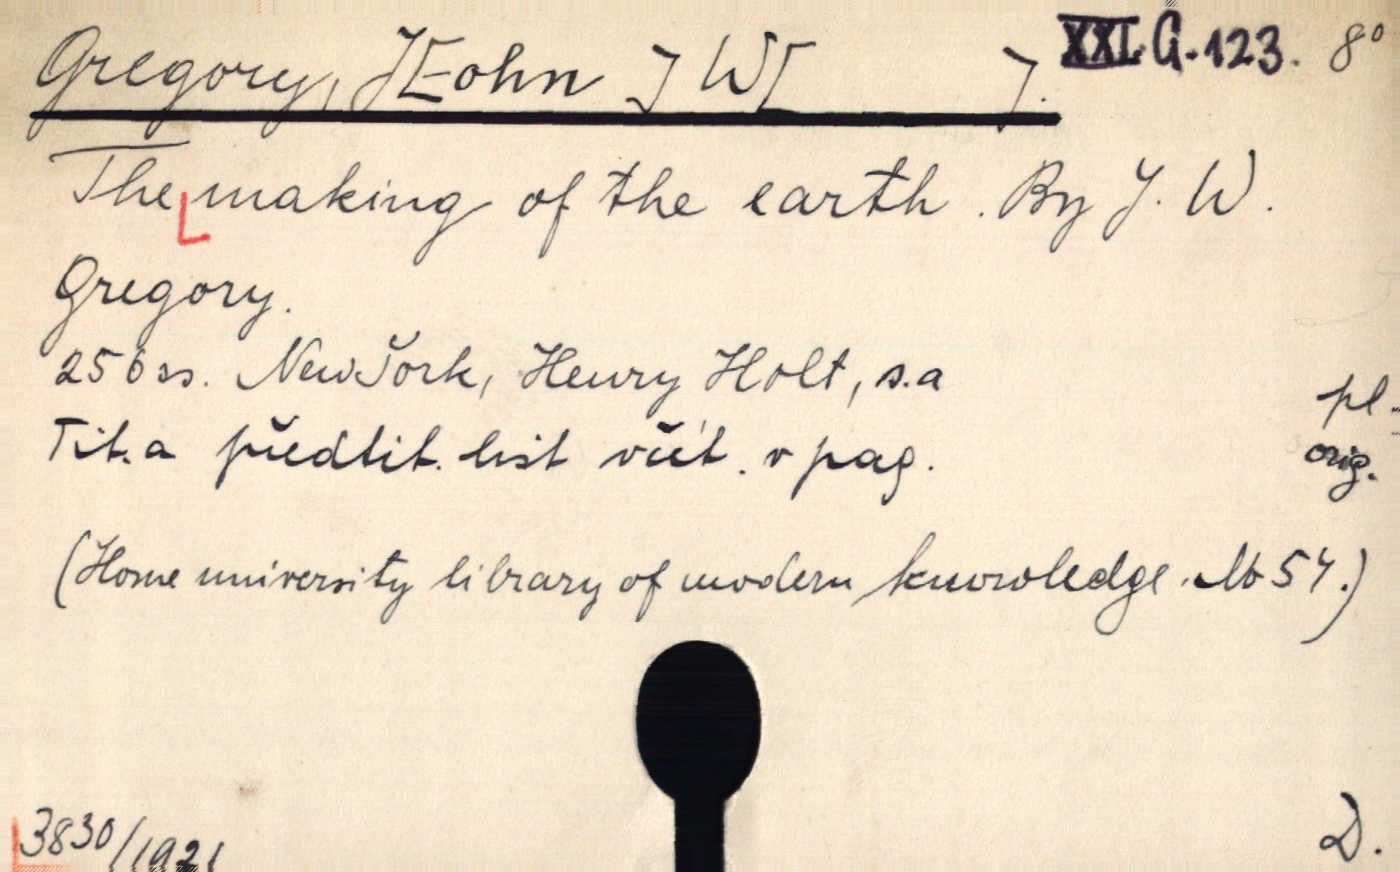 Gregory, J[ohn] W[ ]. XXI.G.123. 8°
The making of the earth. By J. W.
Gregory.
256 ss. New York, Henry Holt, s.a
pl.
Tit. a předtit. list včít. v pag.
orig.
(Home university library of modern knowledge. No 54.)
3830/1921
D.